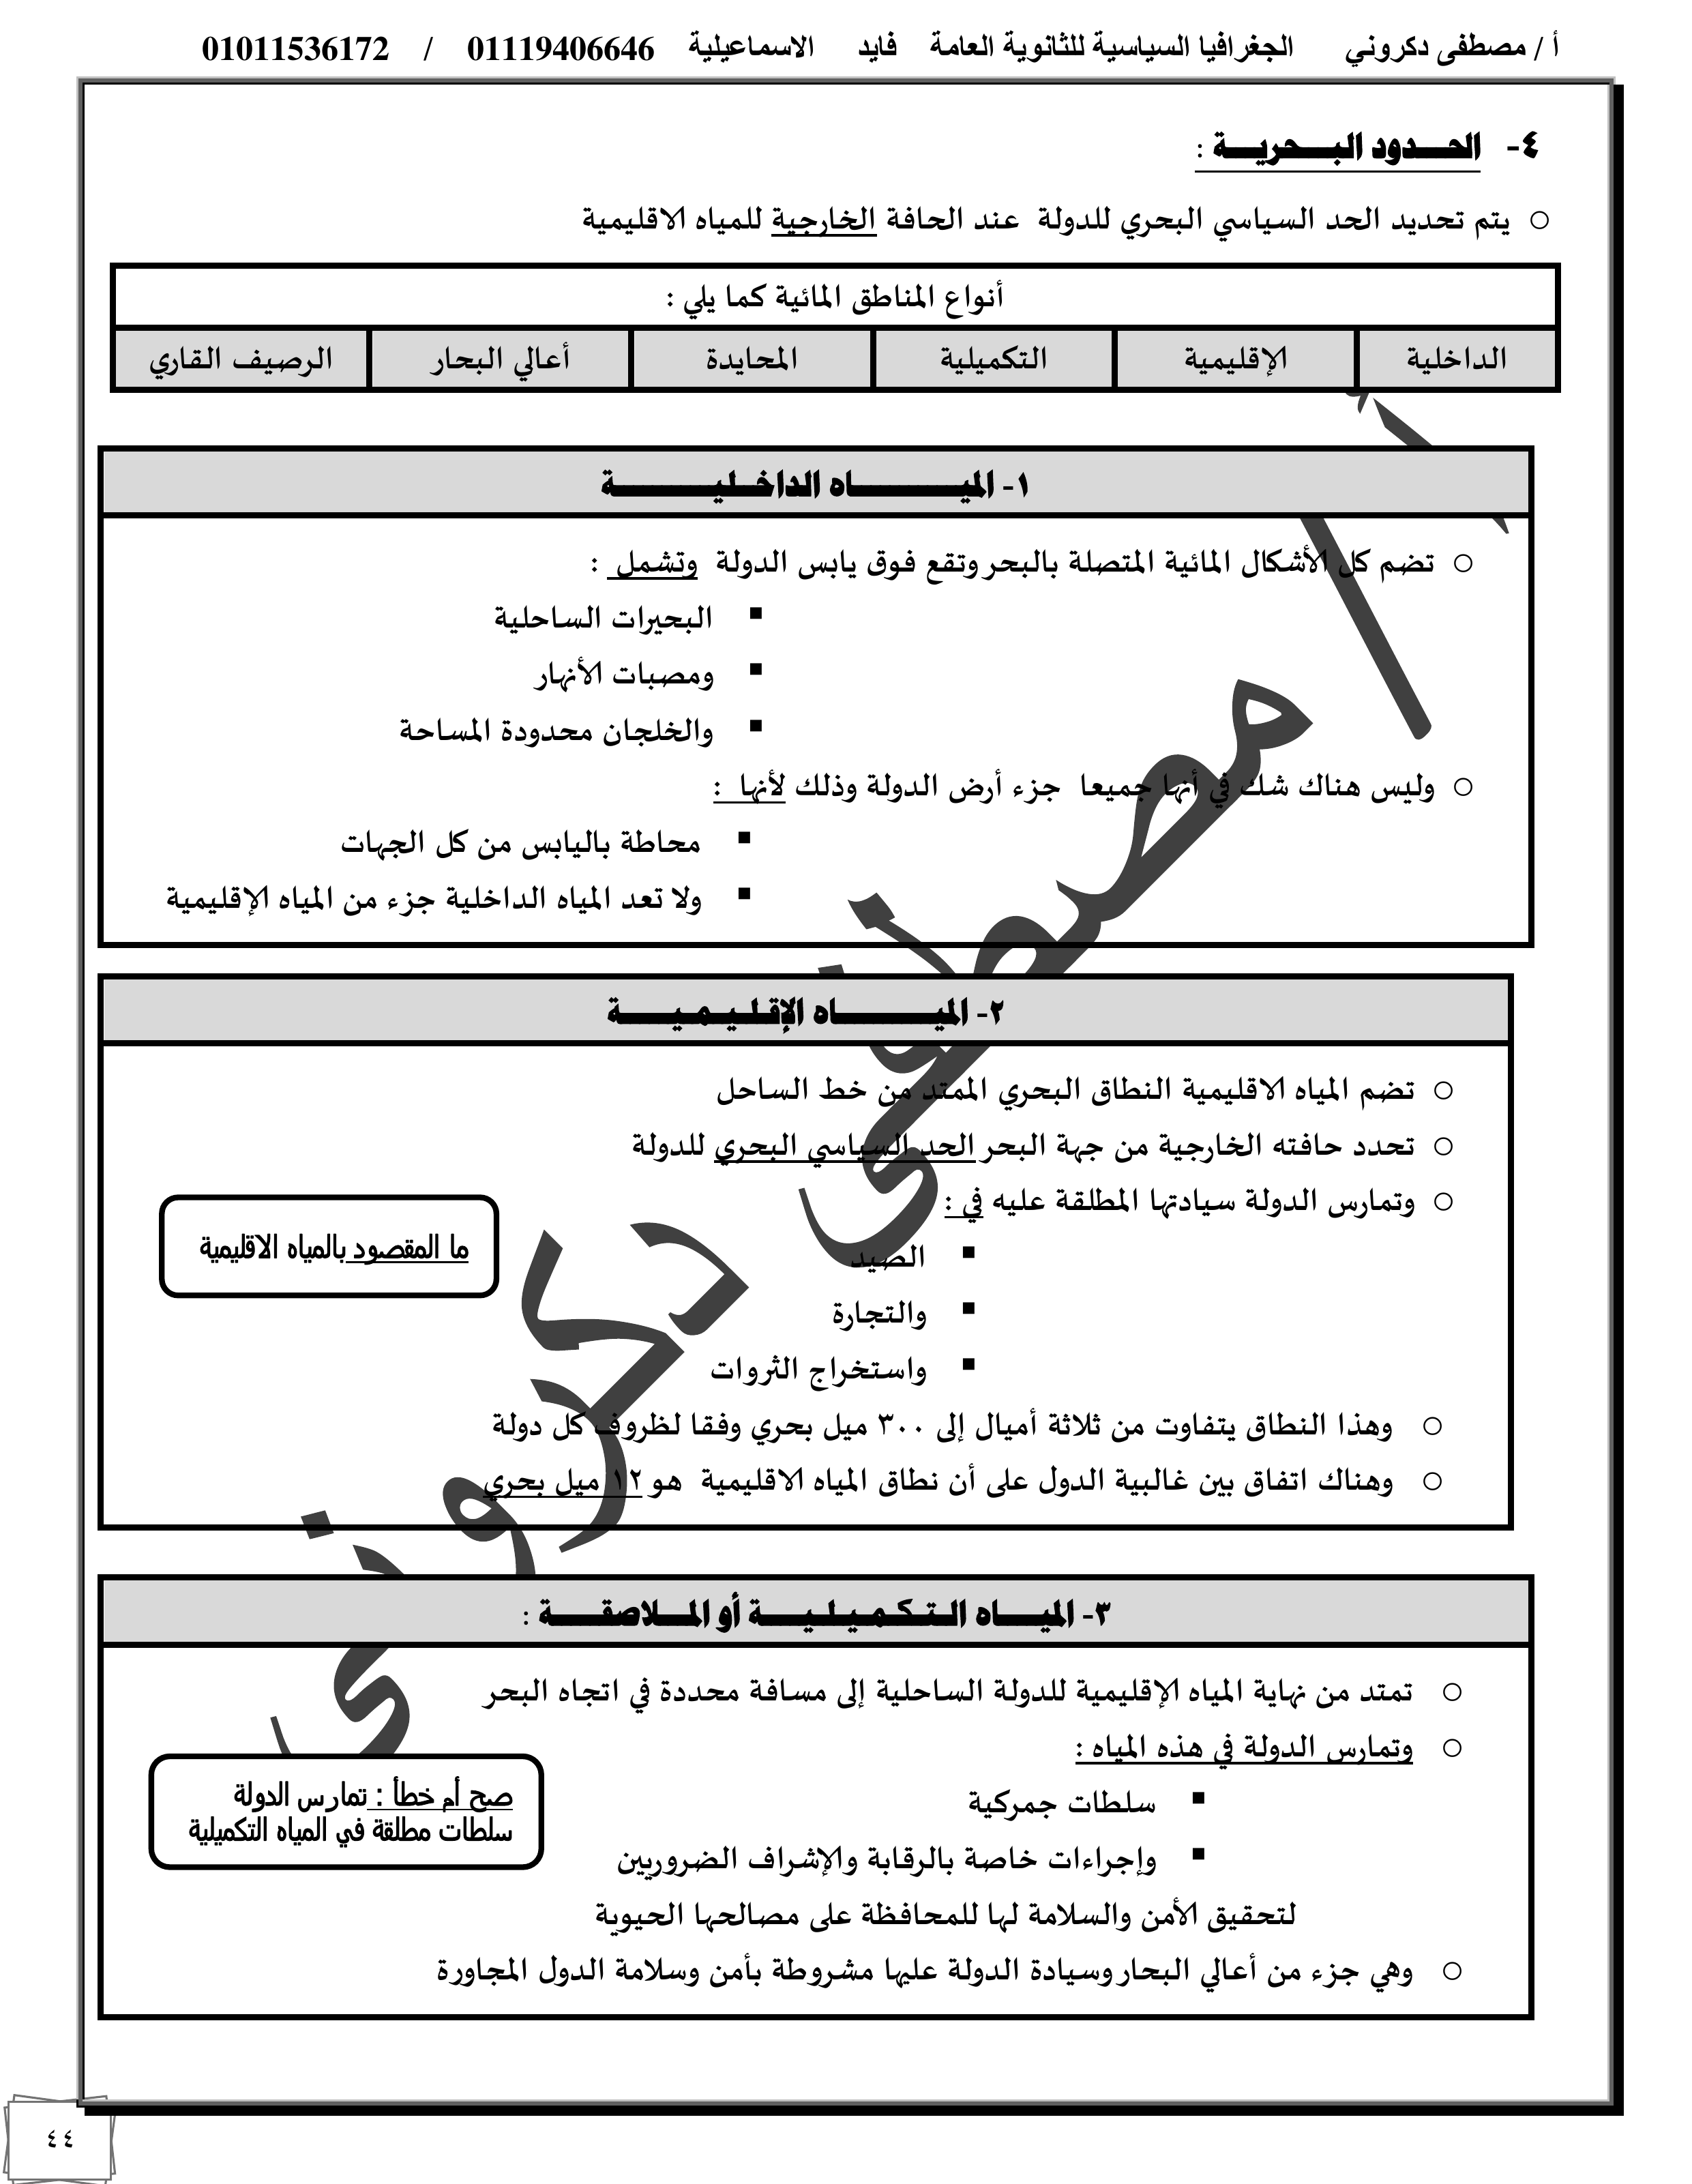 أ / مصطفى دكروني الجغرافيا السياسية للثانوية العامة فايد الاسماعيلية 01119406646 / 01011536172
٤- الحـــدود البـــحريـــة :
يتم تحديد الحد السياسي البحري للدولة عند الحافة الخارجية للمياه الاقليمية
أنواع المناطق المائية كما يلي :
الداخلية الإقليمية التكميلية المحايدة أعالي البحار الرصيف القاري
١- الميـــــــاه الداخـليـــــــة
تضم كل الأشكال المائية المتصلة بالبحر وتقع فوق يابس الدولة وتشمل :
البحيرات الساحلية
ومصبات الأنهار
والخلجان محدودة المساحة
وليس هناك شك في أنها جميعا جزء أرض الدولة وذلك لأنها :
محاطة باليابس من كل الجهات
ولا تعد المياه الداخلية جزء من المياه الإقليمية
٢- الميـــــــاه الإقـلـيـمـيـــــة
تضم المياه الاقليمية النطاق البحري الممتد من خط الساحل
تحدد حافته الخارجية من جهة البحر الحد السياسي البحري للدولة
وتمارس الدولة سيادتها المطلقة عليه في :
ما المقصود بالمياه الاقليمية
الصيد
والتجارة
واستخراج الثروات
وهذا النطاق يتفاوت من ثلاثة أميال إلى ٣٠٠ ميل بحري وفقا لظروف كل دولة
وهناك اتفاق بين غالبية الدول على أن نطاق المياه الاقليمية هو ١٢ ميل بحري
٣- الميـــــاه الـتـكـمـيـلـيـــــة أو المـــلاصقـــــة :
تمتد من نهاية المياه الإقليمية للدولة الساحلية إلى مسافة محددة في اتجاه البحر
وتمارس الدولة في هذه المياه :
صح أم خطأ : تمارس الدولة
سلطات مطلقة في المياه التكميلية
سلطات جمركية
وإجراءات خاصة بالرقابة والإشراف الضروريين
لتحقيق الأمن والسلامة لها للمحافظة على مصالحها الحيوية
وهي جزء من أعالي البحار وسيادة الدولة عليها مشروطة بأمن وسلامة الدول المجاورة
أ / مصطفى دكروني
٤٤